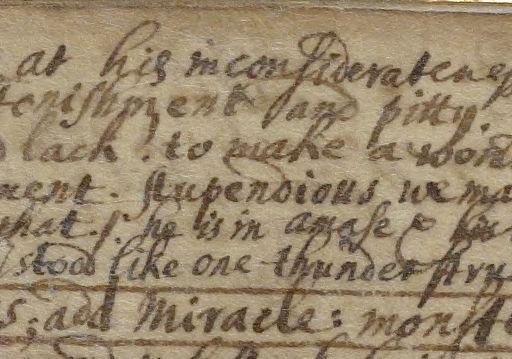 at his inconsideratenes
tonishment and pitty.
lack. to make a won
ment. stupendious we ma
that. he is in amase &
stood like one thunder stru
s; add Miracle: monst